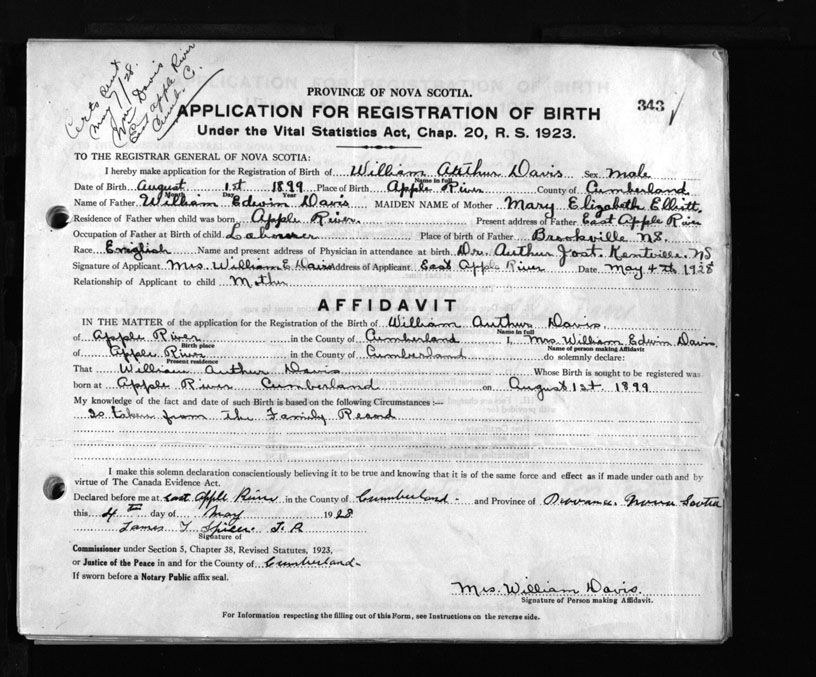 Certs sent
May 7/28.
Wm Davis
East Apple River
Cumb. C.
PROVINCE OF NOVA SCOTIA.
343
APPLICATION FOR REGISTRATION OF BIRTH
Under the Vital Statistics Act, Chap. 20, R. S. 1923.
TO THE REGISTRAR GENERAL OF NOVA SCOTIA:
I hereby make application for the Registration of Birth of William Arthur Davis Sex Male
Name in full
Date of Birth August 1st 1899 Place of Birth Apple River County of Cumberland
Month Day Year
Name of Father William Edwin Davis MAIDEN NAME of Mother Mary Elizabeth Elliott
Residence of Father when child was born Apple River Present address of Father East Apple River
Occupation of Father at Birth of child Labourer Place of birth of Father Brookville N.S.
Race English Name and present address of Physician in attendance at birth Dr. Arthur Jost. Kentville. NS
Signature of Applicant Mrs. William E Davis Address of Applicant East Apple River Date May 4th 1928
Relationship of Applicant to child Mother
AFFIDAVIT
IN THE MATTER of the application for the Registration of the Birth of William Arthur Davis
Name in full
of Apple River in the County of Cumberland I, Mrs. William Edwin Davis
Birth place Name of person making Affidavit
of Apple River in the County of Cumberland do solemnly declare:
Present residence
That William Arthur Davis Whose Birth is sought to be registered was
born at Apple River Cumberland on August 1st 1899
My knowledge of the fact and date of such Birth is based on the following Circumstances :—
Is taken from the Family Record
I make this solemn declaration conscientiously believing it to be true and knowing that it is of the same force and effect as if made under oath and by
virtue of The Canada Evidence Act.
Declared before me at East Apple River in the County of Cumberland - and Province of Nova Scotia
this 4th day of May 1928
James T Spicer J. P
Signature of
Commissioner under Section 5, Chapter 38, Revised Statutes, 1923,
or Justice of the Peace in and for the County of Cumberland-
If sworn before a Notary Public affix seal.
Mrs. William Davis
Signature of Person making Affidavit.
For Information respecting the filling out of this Form, see Instructions on the reverse side.